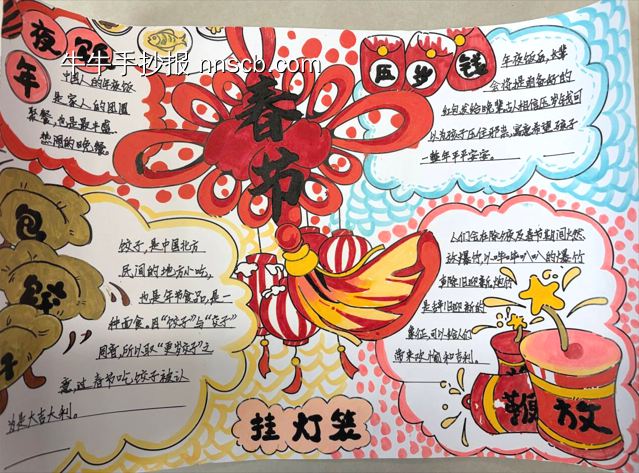 牛牛手抄报 nnscb.com
年夜饭
中国人的年夜饭
是家人的团圆
聚餐,也是最丰盛
热闹的晚餐。
春节
压岁钱
年夜饭后,长辈
会将提前备好的
红包发给晚辈,古人相信压岁钱可
以为孩子压住邪祟,寓意希望孩子
一整年平平安安。
包
饺子,是中国北方
民间的地方小吃,
也是年节食品,是一
种面食。因“饺子”与“交子”
同音,所以取“更岁交子”之
意,过春节吃饺子被认
为是大吉大利。
人们会在除夕夜及春节期间
放爆竹,以的爆竹
声除旧迎新,炮竹
是辞旧迎新的
象征,可以给人们
带来欢愉和吉利。
放鞭
挂灯笼